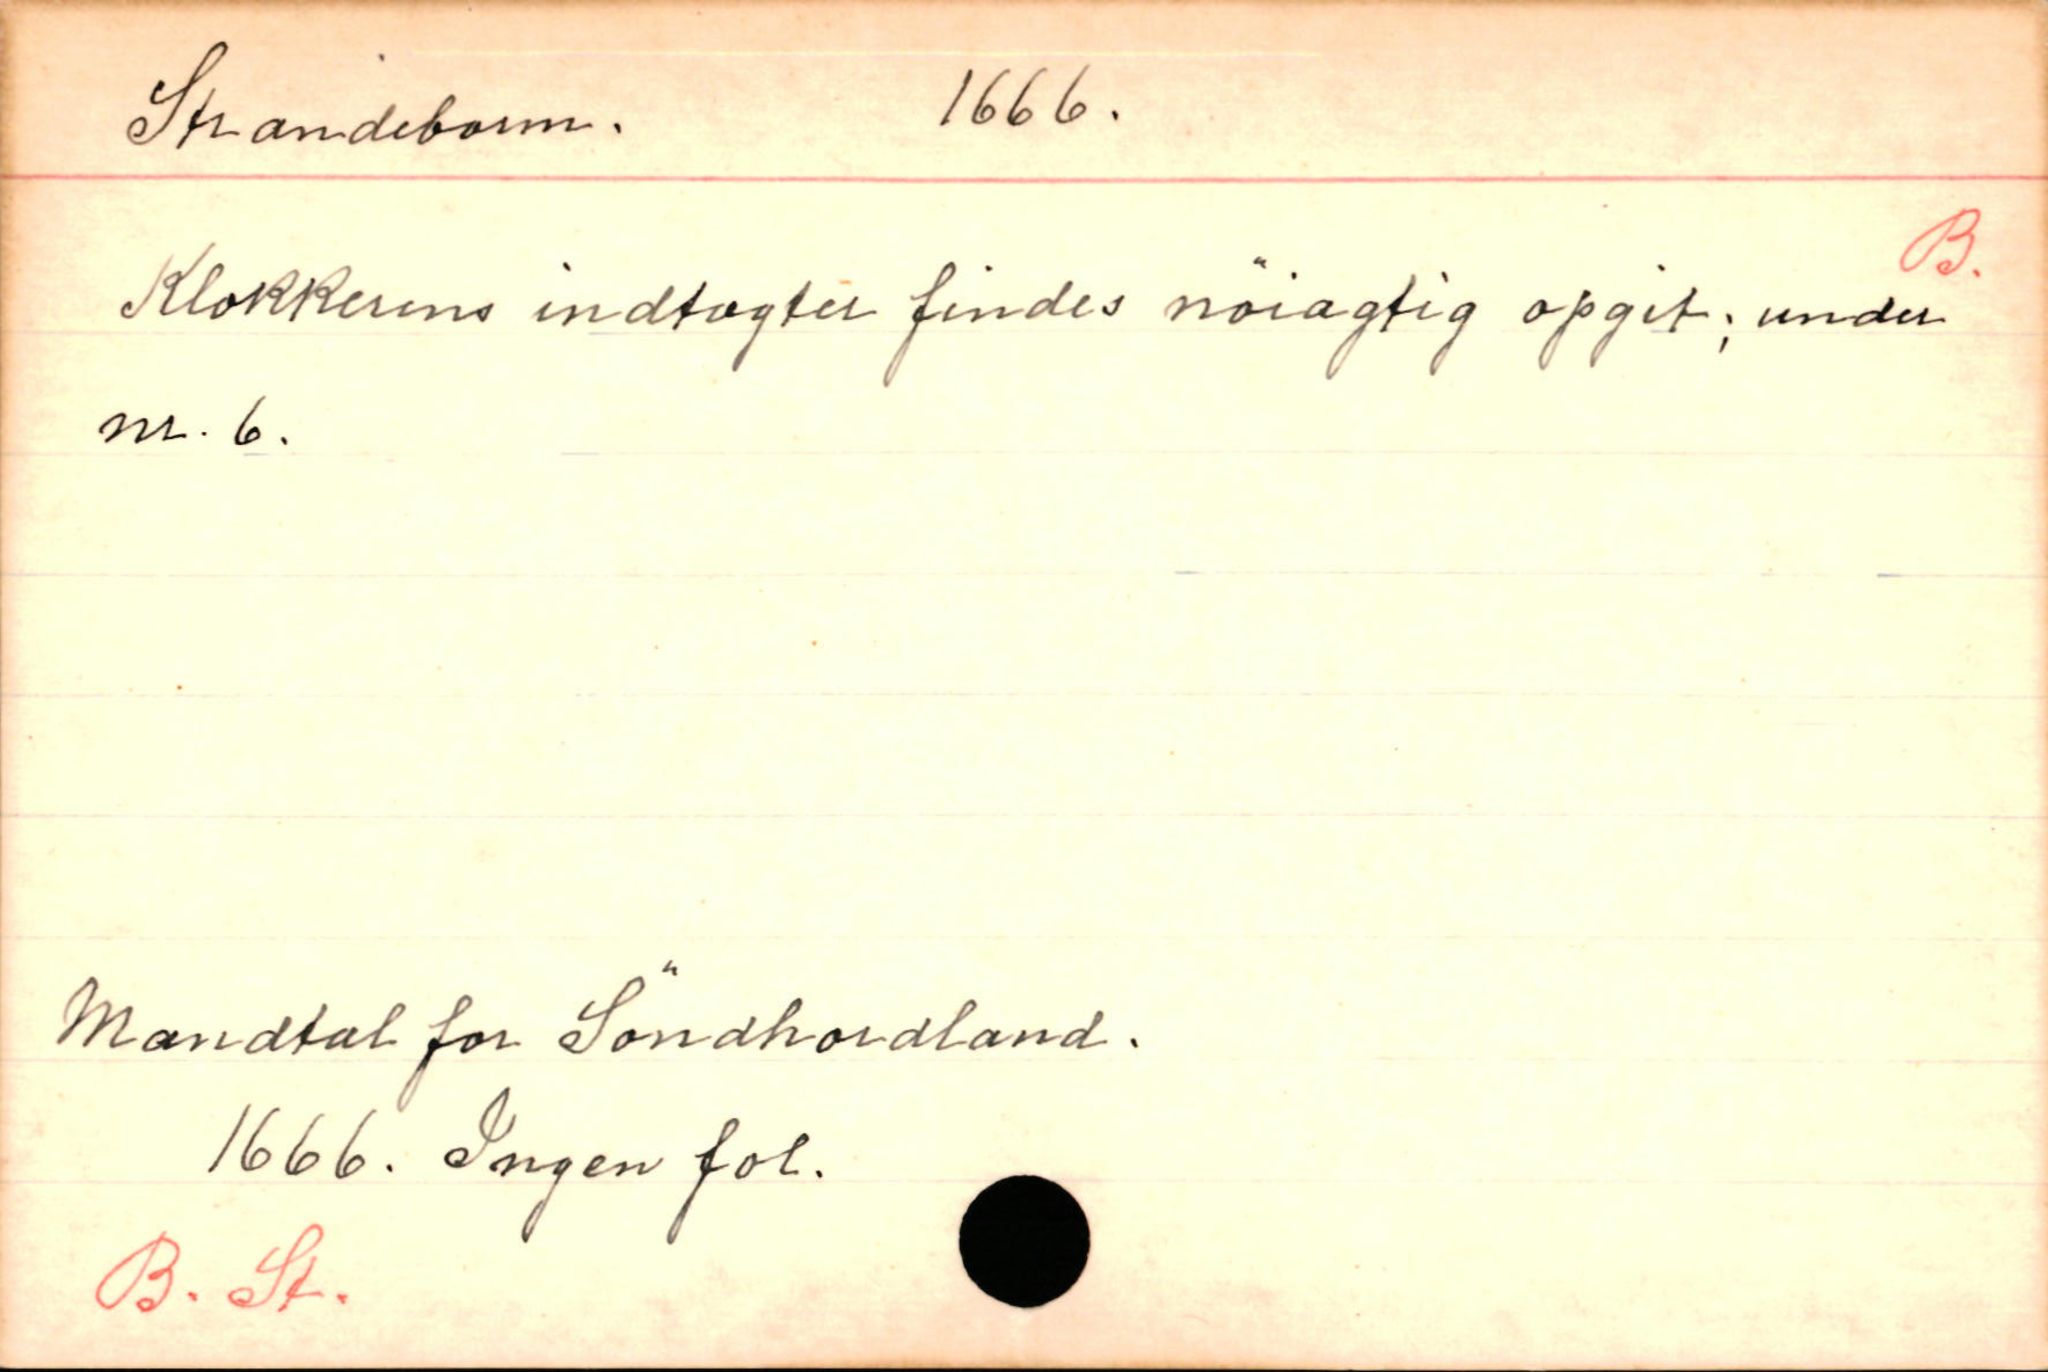 Strandebarm. 1666.
B.
Klokkerens indtægter findes nöiagtig opgit; under
nr. 6.
Mandtal for Söndhordland.
1666. Ingen fol.
B. St.